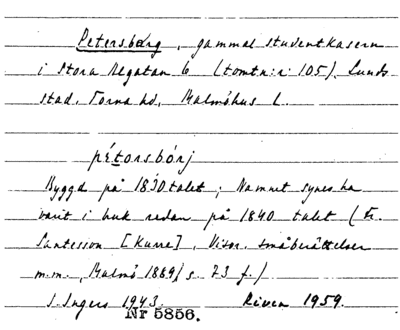 Petersborg, gammal studentkasern
i Stora Algatan 6 (tomtn:r 105), Lunds
stad, Torna hd, Malmöhus l.
pétorsbórj
Byggd på 1830 talet; Namnet synes ha
varit i bruk redan på 1840 talet (Fr.
Santesson [Kurre], Visor, småberättelser
m.m., Malmö 1889, s. 73 f.)
I. Ingers 1943. Riven 1959.
Nr 5856.